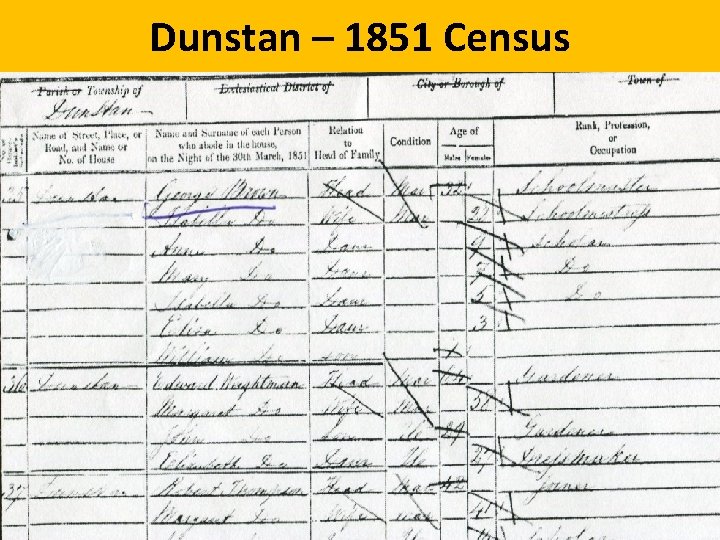 Dunstan – 1851 Census
Parish or Township of Ecclesiastical District of City or Borough of Town of
Dunstan
Name of Street, Place, or Road, and Name or No. of House
Name and Surname of each Person who abode in the house, on the Night of the 30th March, 1851
Relation to Head of Family
Condition
Age of
Males Females
Rank, Profession, or Occupation
35 Dunstan George Brown Head Mar 32 Schoolmaster
Isabella Do Wife Mar 32 Schoolmistress
Ann Do Daur 9 Scholar
Mary Do Daur 7 Do
Isabella Do Daur 5 Do
Eliza Do Daur 3
William Do Son 1
36 Dunstan Edward Wightman Head Mar 64 Gardener
Margaret Do Wife Mar
John Do Son Un 29 Gardener
Elizabeth Do Daur Un 27 Dressmaker
37 Dunstan Robert Thompson Head Mar 42 Joiner
Margaret Do Wife Mar 41